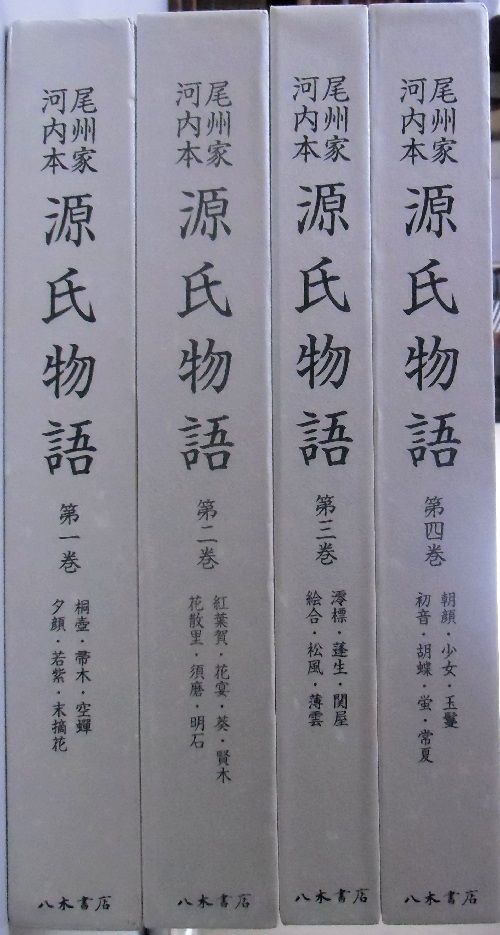 尾州家
河内本
源氏物語
第一巻
桐壺・帚木・空蟬
夕顔・若紫・末摘花
八木書店
尾州家
河内本
源氏物語
第二巻
紅葉賀・花宴・葵・賢木
花散里・須磨・明石
八木書店
尾州家
河内本
源氏物語
第三巻
澪標・蓬生・関屋
絵合・松風・薄雲
八木書店
尾州家
河内本
源氏物語
第四巻
朝顔・少女・玉鬘
初音・胡蝶・蛍・常夏
八木書店